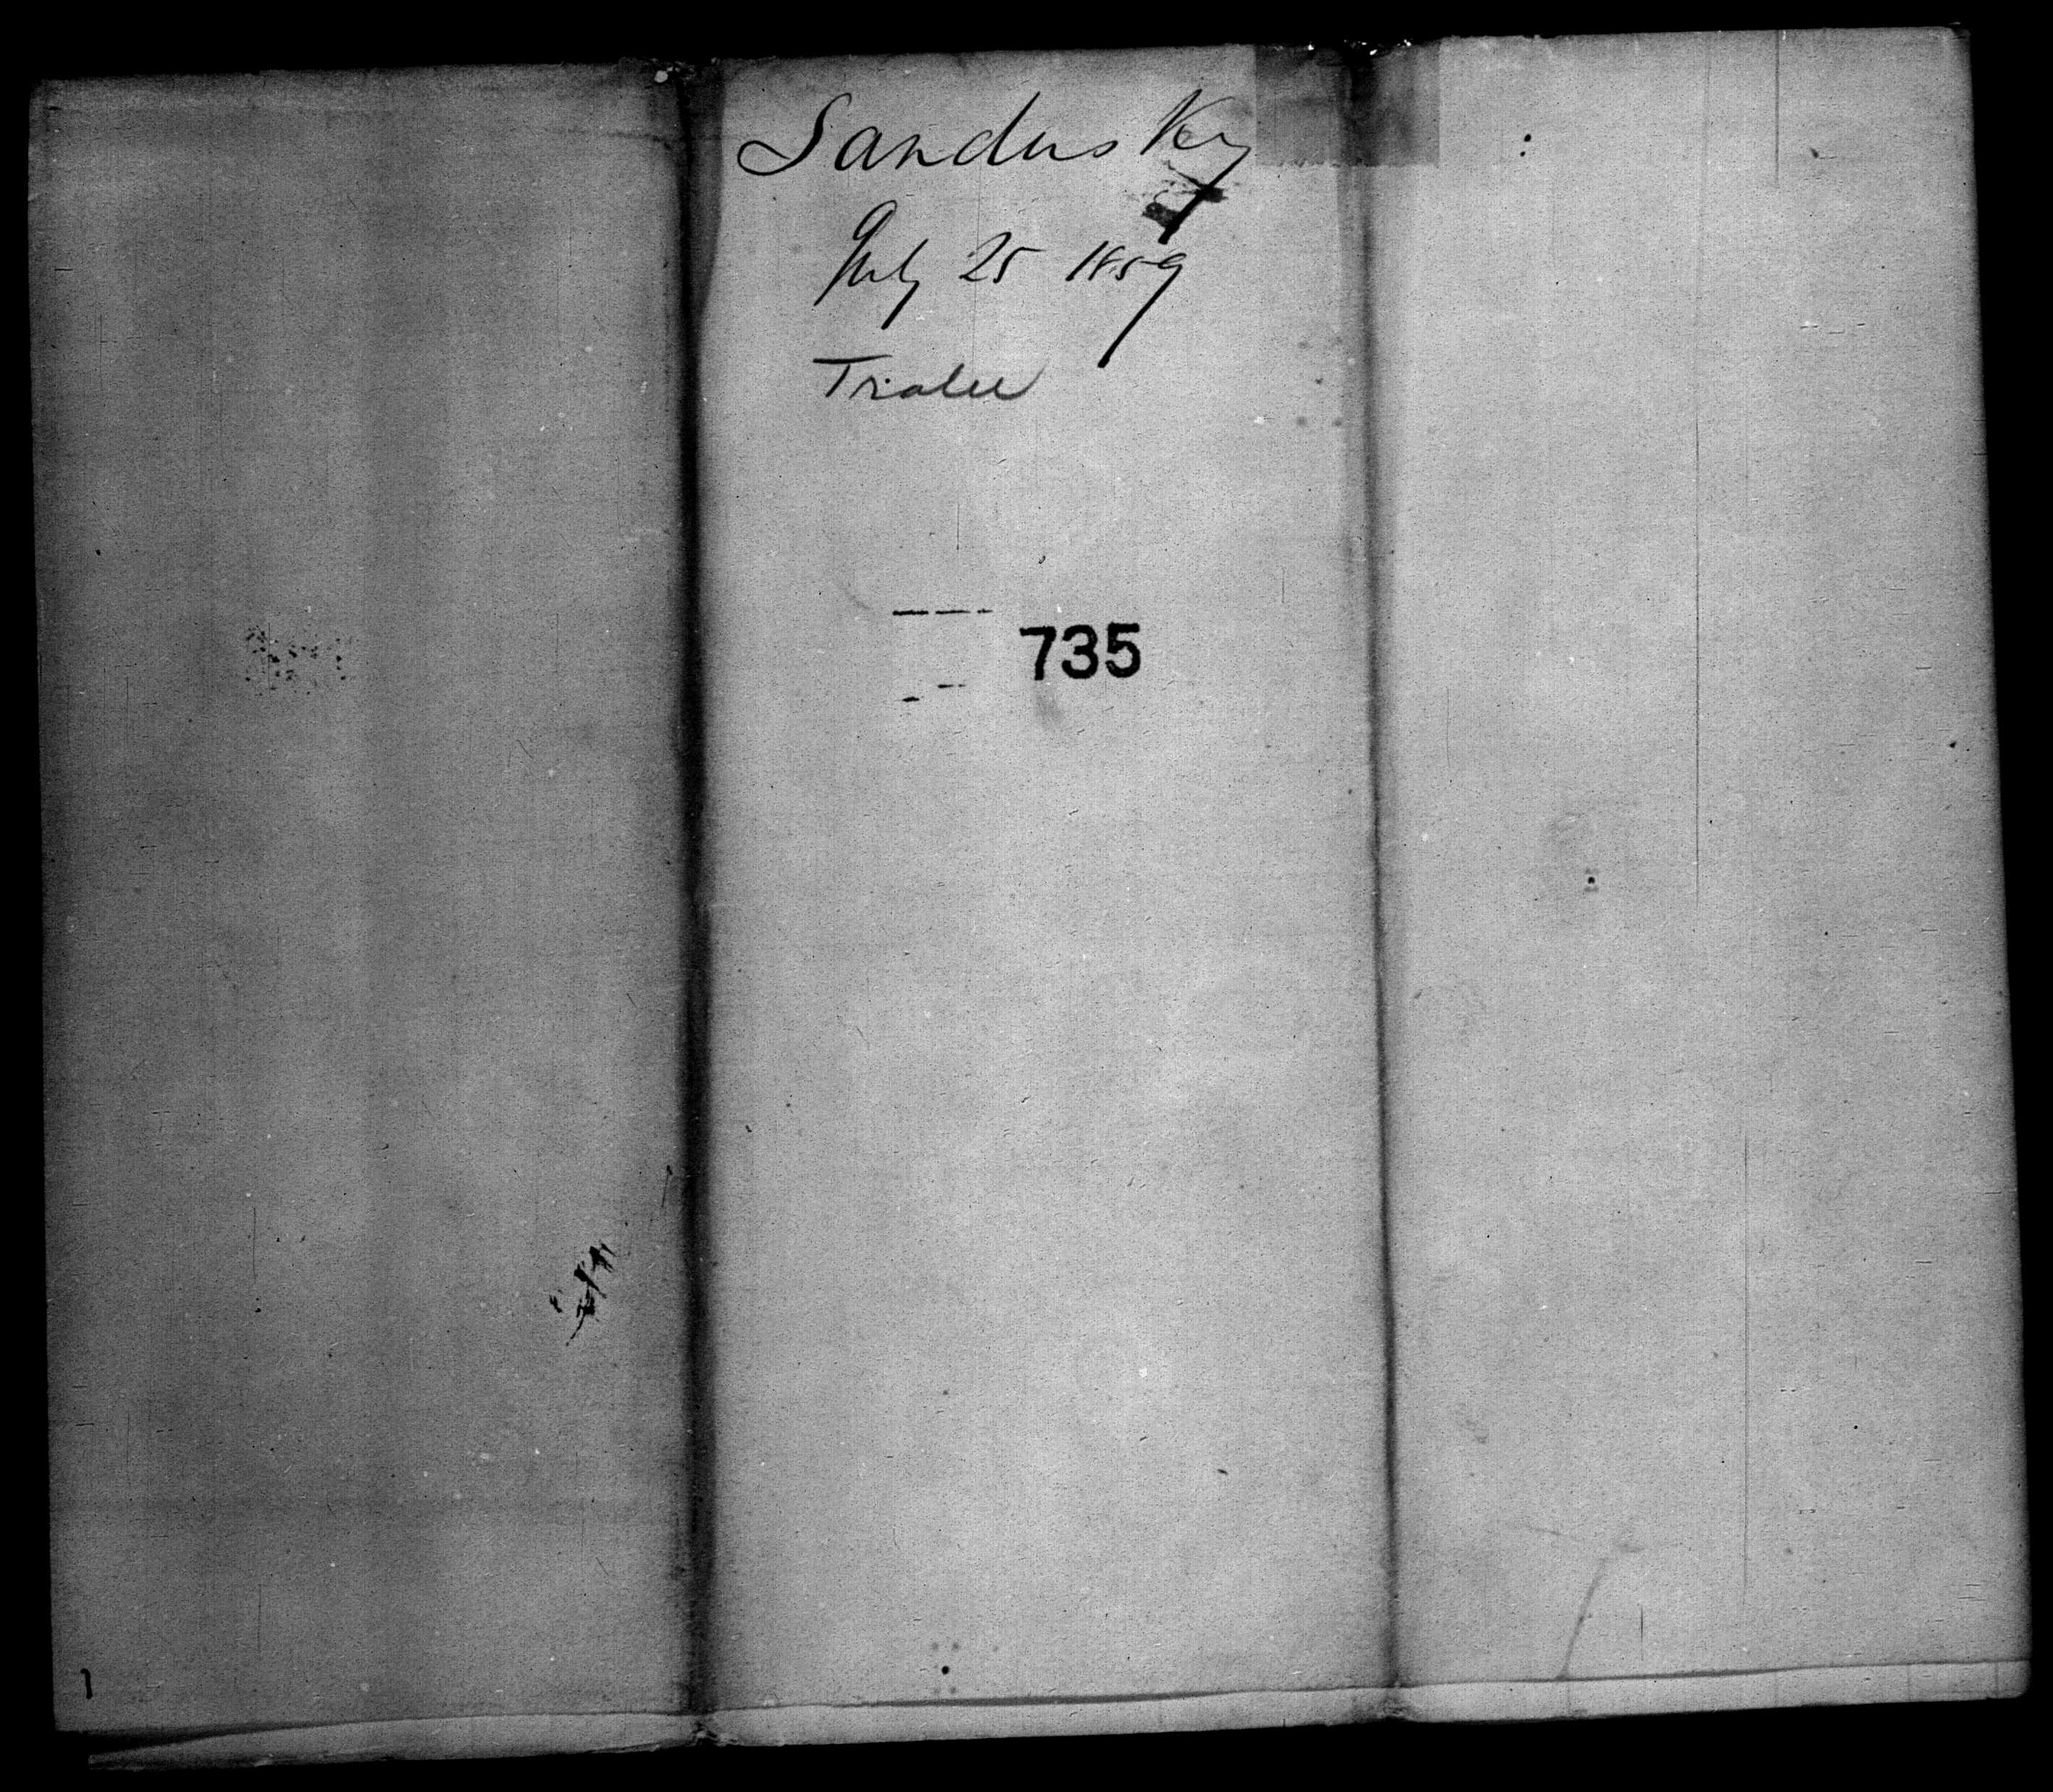 Sandusky
July 25 1859
Tralee
735